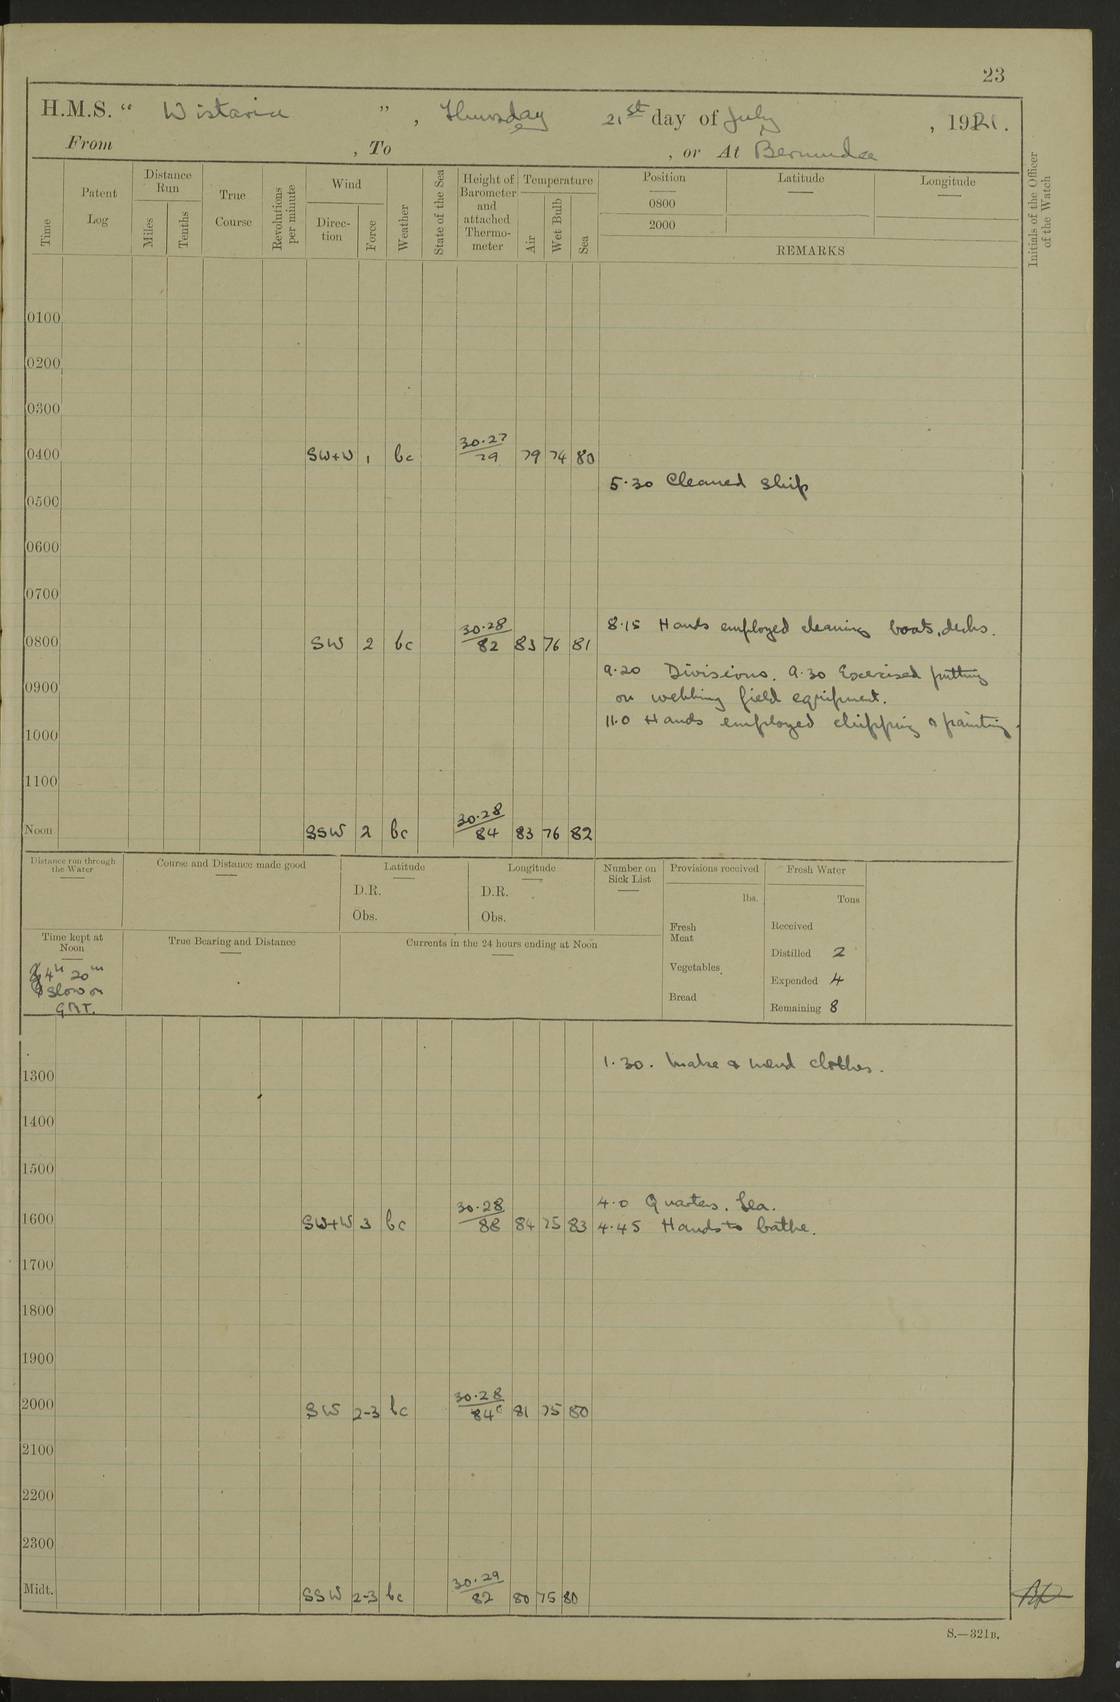 23
H.M.S. “ Wistaria ” , Thursday 21st day of July , 1921.
From , To , or At Bermuda
Time Patent Log Distance Run Miles Tenths True Course Revolutions per minute Wind Direc-tion Force Weather State of the Sea Height of Barometer and attached Thermo-meter Temperature Air Wet Bulb Sea Position 0800 2000 Latitude Longitude REMARKS Initials of the Officer of the Watch
0100
0200
0300
0400 SW+W 1 bc 30.27/79 79 74 80
5.30 Cleaned Ship
0500
0600
0700
8.15 Hands employed cleaning boats, decks.
0800 SW 2 bc 30.28/82 83 76 81
9.20 Divisions. 9.30 Exercised putting
0900
on webbing field equipment.
11.0 Hands employed chipping & painting.
1000
1100
Noon SSW 2 bc 30.28/84 83 76 82
Distance run through the Water Course and Distance made good Latitude D.R. Obs. Longitude D.R. Obs. Number on Sick List Provisions received lbs. Fresh Water Tons
Fresh Meat Received
Time kept at Noon True Bearing and Distance Currents in the 24 hours ending at Noon
Distilled 2
4h 20m
Vegetables Expended 4
slow on
Bread Remaining 8
G.M.T.
1.30. Make & mend clothes.
1300
1400
1500
4.0 Quarters. Tea.
1600 SW+W 3 bc 30.28/88 84 75 83 4.45 Hands to bathe.
1700
1800
1900
2000 SW 2-3 bc 30.28/84 81 75 80
2100
2200
2300
Midt. SSW 2-3 bc 30.29/82 80 75 80
S.—321B.